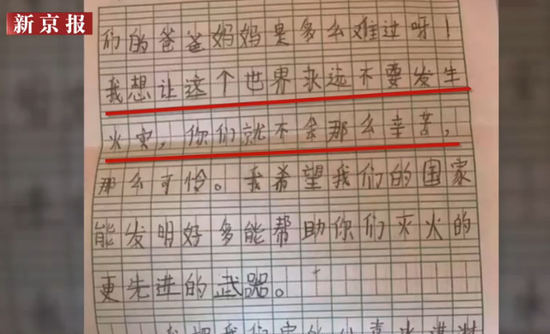 新京报
们的爸爸妈妈是多么难过呀！
我想让这个世界永远不要发生
火灾，你们就不会那么辛苦，
那么可怜。我希望我们的国家
能发明好多能帮助你们灭火的
更先进的武器。